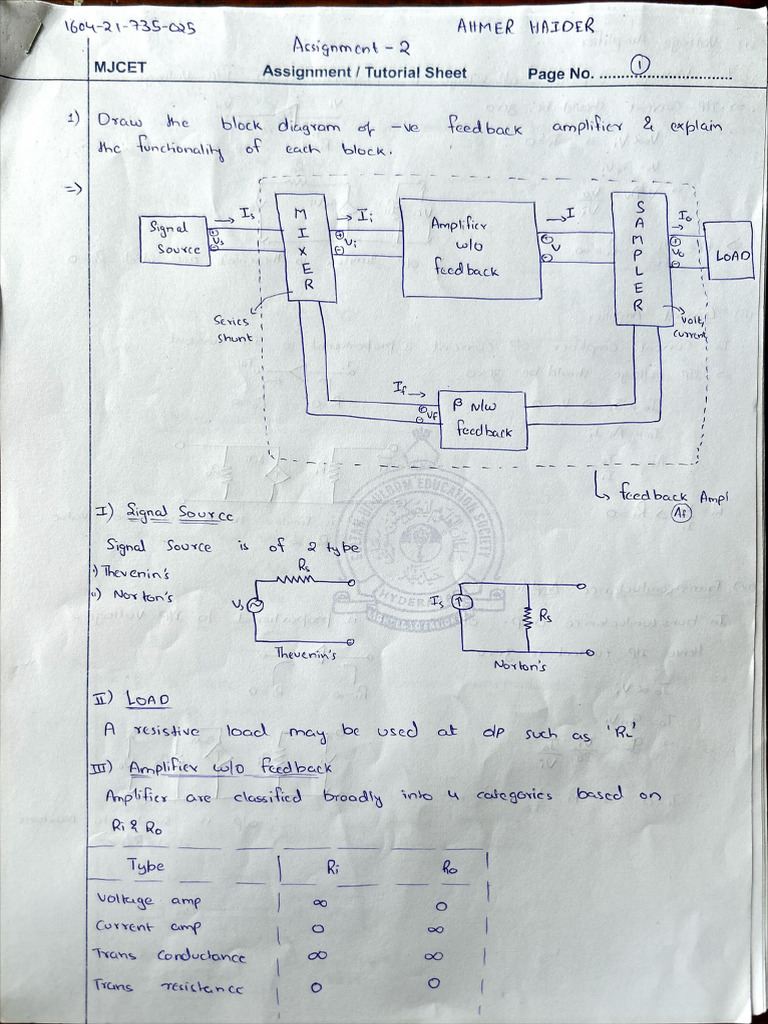 1604-21-735-025
AHMER HAIDER
Assignment - 2
MJCET
Assignment / Tutorial Sheet
Page No. 1
1) Draw the block diagram of -ve feedback amplifier & explain
the functionality of each block.
=>
Signal
Source
Is
Vs
MIXER
Ii
Vi
Amplifier
w/o
feedback
I
V
SAMPLER
Io
Vo
LOAD
Series
Shunt
Volt,
Current
If
Vf
β N/w
feedback
feedback Ampl
Af
I) Signal Source
Signal Source is of 2 type
i) Thevenin's
ii) Norton's
Rs
Vs
Thevenin's
Is
Rs
Norton's
HYDERABAD
II) LOAD
A resistive load may be used at o/p such as 'RL'
III) Amplifier w/o feedback
Amplifier are classified broadly into 4 categories based on
Ri & Ro
Type Ri Ro
Voltage amp ∞ 0
Current amp 0 ∞
Trans conductance ∞ ∞
Trans resistance 0 0